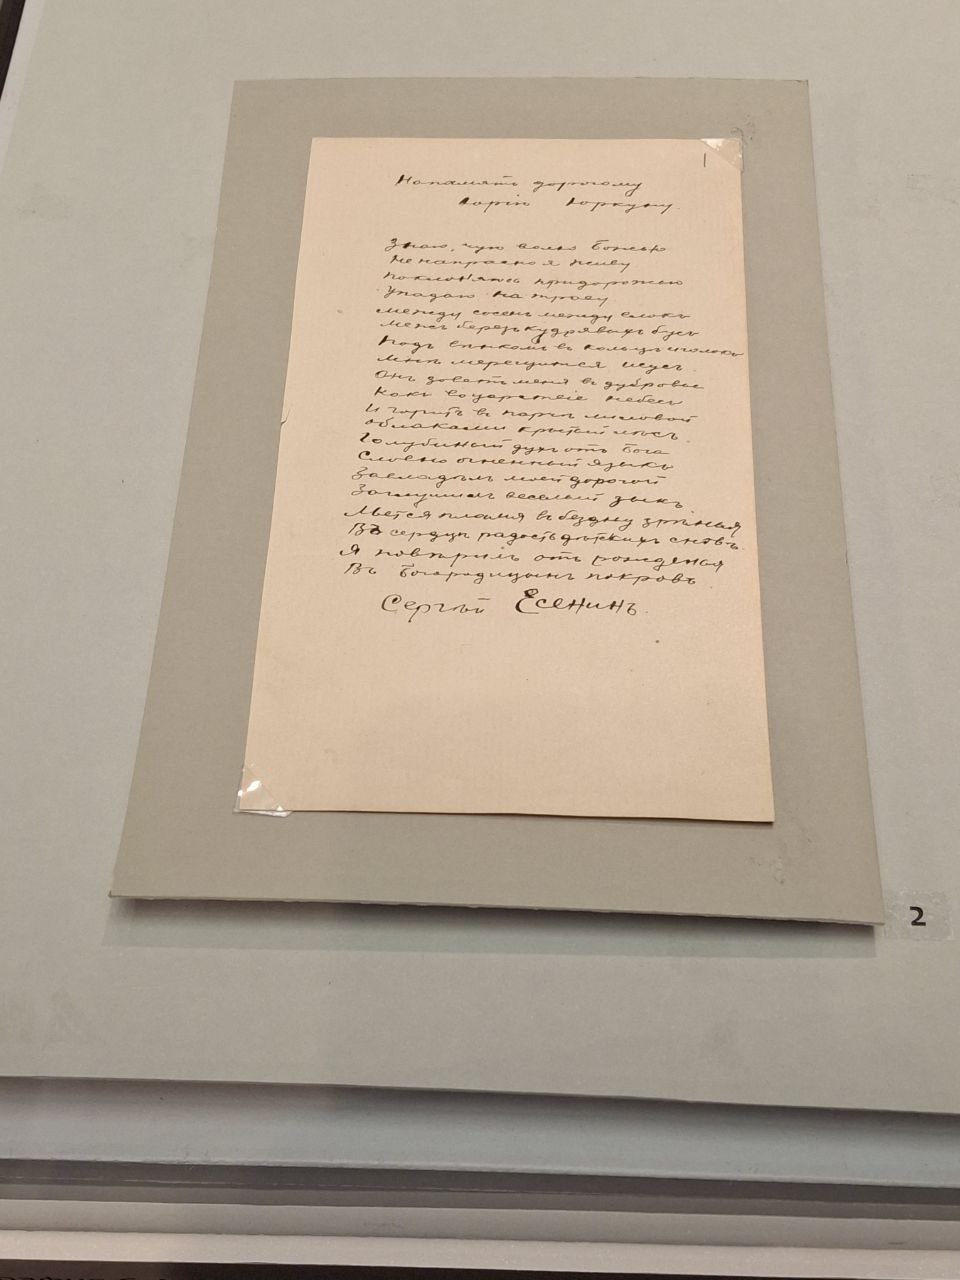 На память дорогому
Юрію Юркуну.
Знаю, чую волю Божью
Не напрасно я живу
Поклоняюсь придорожью
Упадаю на траву
Между сосен между елок
Меж березъ кудрявыхъ бусъ
Подъ вѣнкомъ въ кольцѣ иголокъ
Мнѣ мерещится Исусъ.
Онъ зоветъ меня въ дубровы
Какъ во царствіе небесъ
И горитъ въ парчѣ лиловой
Облаками крытый лѣсъ.
Голубиный духъ отъ Бога
Словно огненный языкъ
Завладѣлъ моей дорогой
Заглушилъ веселый зыкъ.
Льется пламя въ бездну зрѣнья
Въ сердцѣ радость дѣтскихъ сновъ.
Я повѣрилъ отъ рожденья
Въ Богородицынъ покровъ.
Сергѣй Есенинъ.
2